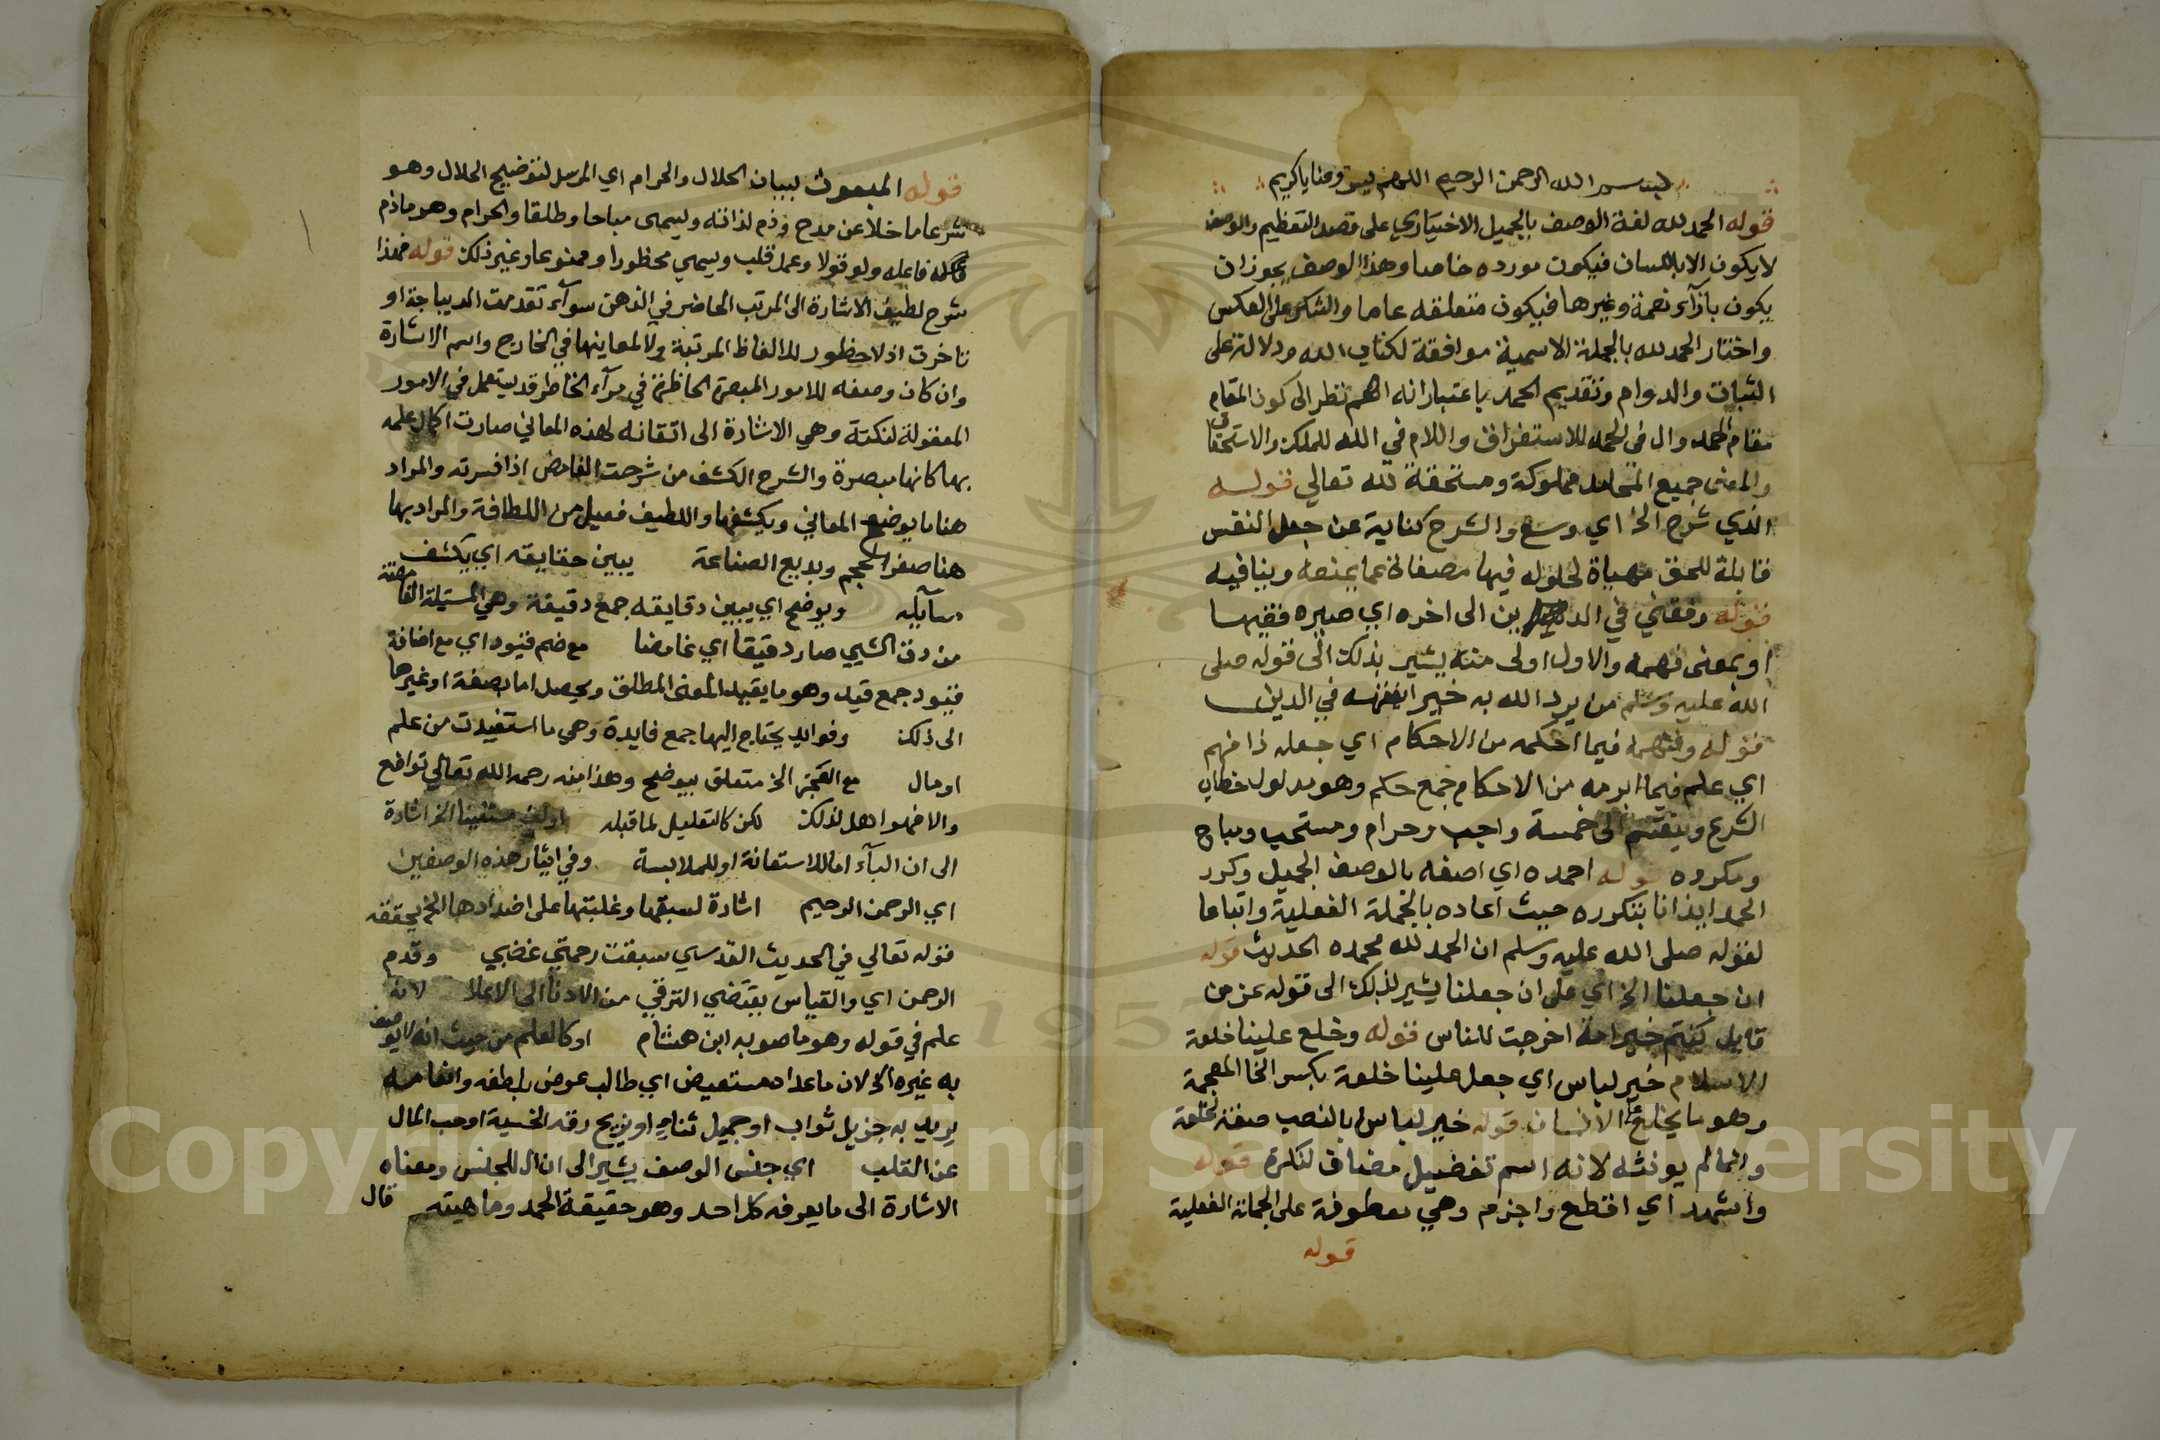 بسم الله الرحمن الرحيم اللهم يسر وعنا يا كريم
قوله الحمد لله لغة الوصف بالجميل الاختياري على قصد التعظيم والوصف
لا يكون الا باللسان فيكون مورده خاصا وهذا الوصف يجوز ان
يكون بازآء نعمة وغيرها فيكون متعلقه عاما والشكر على العكس
واختار الحمد لله بالجملة الاسمية موافقة لكتاب الله ودلالة على
الثبات والدوام وتقديم الحمد باعتبار انه اهم نظر الى كون المقام
مقام الحمد وال في الحمد للاستغراق واللام في الله للملك والاستحقاق
والمعنى جميع المحامد مملوكة ومستحقة لله تعالي قوله
الذي شرح الخ اي وسع والشرح كناية عن جعل النفس
قابلة للحق مهياة لحلوله فيها مصفاة عما يمنعه وينافيه
قوله وفقهني في الدين الى اخره اي صيره فقيها
او بمعنى فهمه والاول اولى منه يشير بذلك الى قوله صلى
الله عليه وسلم من يرد الله به خيرا يفقهه في الدين
قوله وفهمه فيما احكمه من الاحكام اي جعله ذا فهم
اي علم فيما ابرمه من الاحكام جمع حكم وهو مدلول خطاب
الشرع وينقسم الى خمسة واجب وحرام ومستحب ومباح
ومكروه قوله احمده اي اصفه بالوصف الجميل وكرر
الحمد ايذانا بتكرره حيث اعاده بالجملة الفعلية واتباعا
لقوله صلى الله عليه وسلم ان الحمد لله محمده الحديث قوله
ان جعلنا الخ اي على ان جعلنا يشير لذلك الى قوله عز من
قايل كنتم خير امة اخرجت للناس قوله وخلع علينا خلعة
الاسلام خير لباس اي جعل علينا خلعة بكسر الخا المعجمة
وهو ما يخلع على الانسان قوله خير لباس بالنصب صفة لخلعة
وانما لم يونثه لانه اسم تفضيل مضاف لنكرة قوله
واشهد اي اقطع واجزم وهي معطوفة على الجملة الفعلية
قوله
قوله المبعوث لبيان الحلال والحرام اي المرسل لتوضيح الحلال وهو
شرعا ما خلا عن مدح وذم لذاته ويسمى مباحا وطلقا والحرام وهو ما ذم
فاعله ولو قولا وعمل قلب ويسمي محظورا وممنوعا وغير ذلك قوله فهذا
شرح لطيف الاشارة الى المرتب الحاضر في الذهن سوآء تقدمت الديباجة او
تاخرت اذ لا حظور للالفاظ المرتبة ولا لمعاينها في الخارج واسم الاشارة
وان كان وصفه للامور المبصرة الحاظرة في مرآء الخاطر قد يستعمل في الامور
المعقولة لنكتة وهي الاشارة الى اتقانه لهذه المعاني صارت اكمال علمه
بها كانها مبصرة والشرح الكشف من شرحت الغامض اذا فسرته والمراد
هنا ما يوضح المعاني ويكشفها واللطيف فعيل من اللطافة والمراد بها
هنا صغر الحجم وبديع الصناعة يبين حقايقه اي يكشف
مسآيله ويوضح اي يبين دقايقه جمع دقيقة وهي المسئلة الغامضة
من دق الشيي صار دقيقا اي غامضا مع ضم قيود اي مع اضافة
قيود جمع قيد وهو ما يقيد المعنى المطلق ويحصل اما بصفة او غيرها
الى ذلك وفوايد يحتاج اليها جمع فايدة وهي ما استفيدت من علم
او مال مع العجز الخ متعلق بيوضح وهذا منه رحمه الله تعالي تواضع
والا فهو اهل لذلك لكن كالتعليل لما قبله اولف مستعينا الخ اشارة
الى ان البآء اما للاستعانة او للملابسة وفي ايثار هذه الوصفين
اي الرحمن الرحيم اشارة لسبقها وغلبتها على اضدادها الخ يحققه
قوله تعالي في الحديث القدسي سبقت رحمتي غضبي وقدم
الرحمن اي والقياس يقتضي الترقي من الادنا الى الاعلا لانه
علم في قوله وهو ما صوبه ابن هشام او كالعلم من حيث انه لا يوصف
به غيره الخ لان ما عداه مستعيض اي طالب عوض بلطفه وانعامه
يريد به جزيل ثواب او جميل ثناء او يزيح رقه الخسية او حب المال
عن القلب اي جنس الوصف يشير الى ان ال للجنس ومعناه
الاشارة الى ما يعرفه كل احد وهو حقيقة الحمد وماهيته قال
Copyright © King Saud University
1957